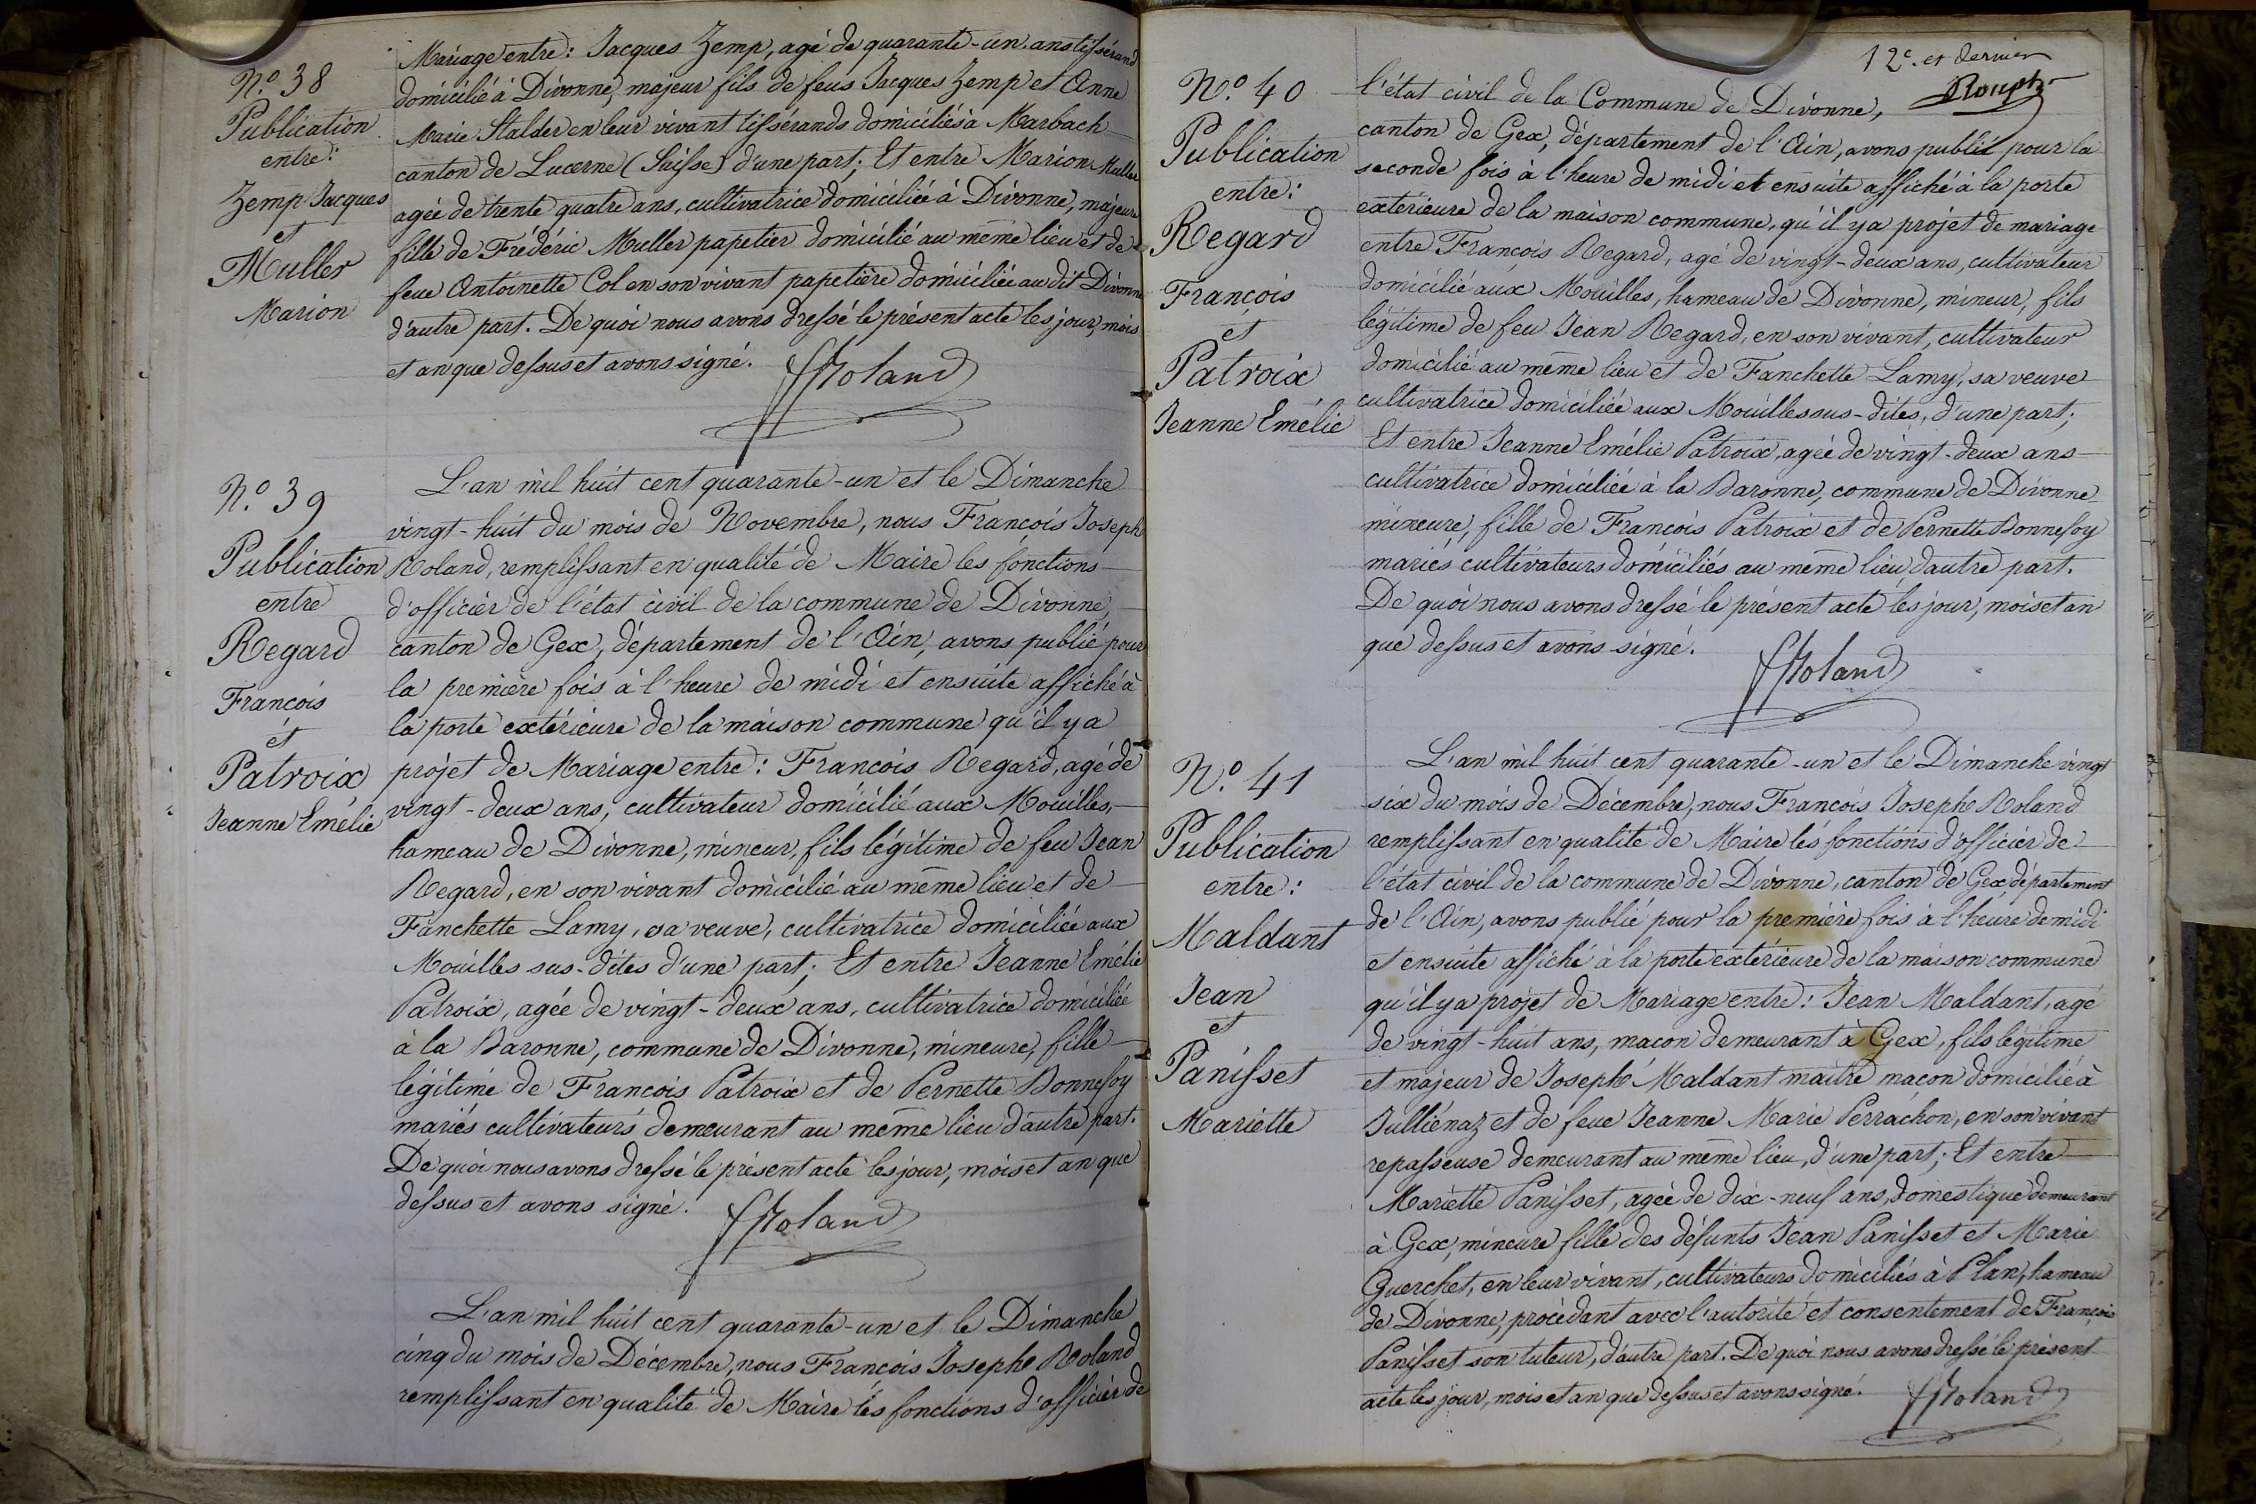 N.o 38
Publication
entre:
Zemp Jacques
et
Muller
Marion
Mariage entre: Jacques Zemp, agé de quarante-un ans tissérand
domicilié à Divonne, majeur fils de feus Jacques Zemp et Anne
Marie Stalder en leur vivant tissérands domiciliés à Marbach
canton de Lucerne (Suisse) d'une part; Et entre Marion Muller
agée de trente quatre ans, cultivatrice domiciliée à Divonne, majeure
fille de Frédéric Muller papetier domicilié au même lieu et de
feue Antoinette Col en son vivant papetière domiciliée au dit Divonne
d'autre part. De quoi nous avons dressé le présent acte les jour, mois
et an que dessus et avons signé.
FRoland
N.o 39
Publication
entre
Regard
François
et
Patroix
Jeanne Emélie
L'an mil huit cent quarante-un et le Dimanche
vingt-huit du mois de Novembre, nous François Joseph
Roland, remplissant en qualité de Maire les fonctions
d'officier de l'état civil de la commune de Divonne,
canton de Gex, département de l'Ain, avons publié pour
la première fois à l'heure de midi et ensuite affiché à
la porte extérieure de la maison commune qu'il y a
projet de Mariage entre: François Regard, agé de
vingt-deux ans, cultivateur domicilié aux Mouilles,
hameau de Divonne, mineur, fils légitime de feu Jean
Regard, en son vivant domicilié au même lieu et de
Fanchette Lamy, sa veuve, cultivatrice domiciliée aux
Mouilles sus-dites d'une part; Et entre Jeanne Emélie
Patroix, agée de vingt-deux ans, cultivatrice domiciliée
à la Baronne, commune de Divonne, mineure, fille
légitime de François Patroix et de Pernette Bonnefoy
mariés cultivateurs demeurant au même lieu d'autre part.
De quoi nous avons dressé le présent acte les jour, mois et an que
dessus et avons signé.
FRoland
L'an mil huit cent quarante-un et le Dimanche
cinq du mois de Décembre, nous François Joseph Roland
remplissant en qualité de Maire les fonctions d'officier de
12e. et dernier
N.o 40
Publication
entre:
Regard
François
et
Patroix
Jeanne Emélie
l'état civil de la Commune de Divonne,
canton de Gex, département de l'Ain, avons publié pour la
seconde fois à l'heure de midi et ensuite affiché à la porte
extérieure de la maison commune, qu'il y a projet de mariage
entre François Regard, agé de vingt-deux ans, cultivateur
domicilié aux Mouilles, hameau de Divonne, mineur, fils
légitime de feu Jean Regard, en son vivant, cultivateur
domicilié au même lieu et de Fanchette Lamy, sa veuve
cultivatrice domiciliée aux Mouilles sus-dites, d'une part;
Et entre Jeanne Emélie Patroix, agée de vingt-deux ans
cultivatrice domiciliée à la Baronne, commune de Divonne
mineure, fille de François Patroix et de Pernette Bonnefoy
mariés cultivateurs domiciliés au même lieu d'autre part.
De quoi nous avons dressé le présent acte les jour, mois et an
que dessus et avons signé.
FRoland
N.o 41
Publication
entre:
Maldant
Jean
et
Panisset
Mariette
L'an mil huit cent quarante-un et le Dimanche vingt
six du mois de Décembre, nous François Joseph Roland
remplissant en qualité de Maire les fonctions d'officier de
l'état civil de la commune de Divonne, canton de Gex, département
de l'Ain, avons publié pour la première fois à l'heure de midi
et ensuite affiché à la porte extérieure de la maison commune
qu'il y a projet de Mariage entre: Jean Maldant, agé
de vingt-huit ans, macon demeurant à Gex, fils légitime
et majeur de Joseph Maldant maître macon domicilié à
Julliénaz et de feue Jeanne Marie Perrachon, en son vivant
repasseuse demeurant au même lieu, d'une part; Et entre
Mariette Panisset, agée de dix-neuf ans, domestique demeurant
à Gex, mineure fille des défunts Jean Panisset et Marie
Guerchet, en leur vivant, cultivateurs domiciliés à Plan, hameau
de Divonne, procédant avec l'autorité et consentement de François
Panisset son tuteur, d'autre part. De quoi nous avons dressé le présent
acte les jour, mois et an que dessus et avons signé.
FRoland